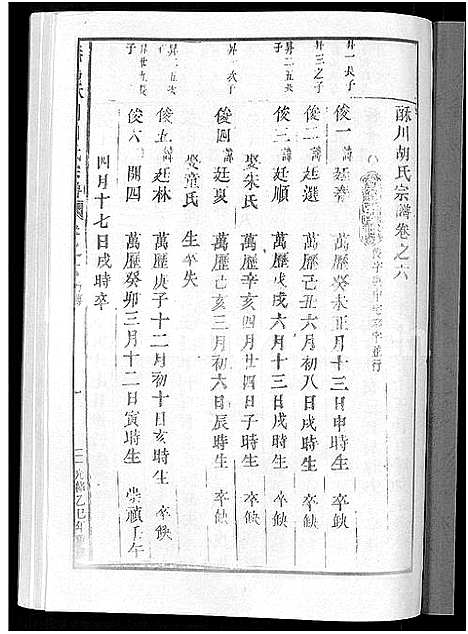 酥川胡氏宗譜卷之六
昇一長子 俊一 諱 廷春 萬歷癸未正月十三日申時生 卒缺
昇三之子 俊二 諱 廷選 萬歷己丑六月初八日戌時生 卒缺
昇二五次子 俊三 諱 廷順 萬歷戊戌六月十三日戌時生 卒缺
娶朱氏 萬歷辛亥四月廿四日子時生 卒缺
昇一次子 俊四 諱 廷夏 萬歷己亥三月初六日辰時生 卒缺
娶童氏 生卒失
俊五 諱 廷林 萬歷庚子十二月初十日亥時生 卒缺
俊六 開四 萬歷癸卯三月十二日寅時生 崇禎壬午
四月十七日戌時卒
一
光緒乙巳年